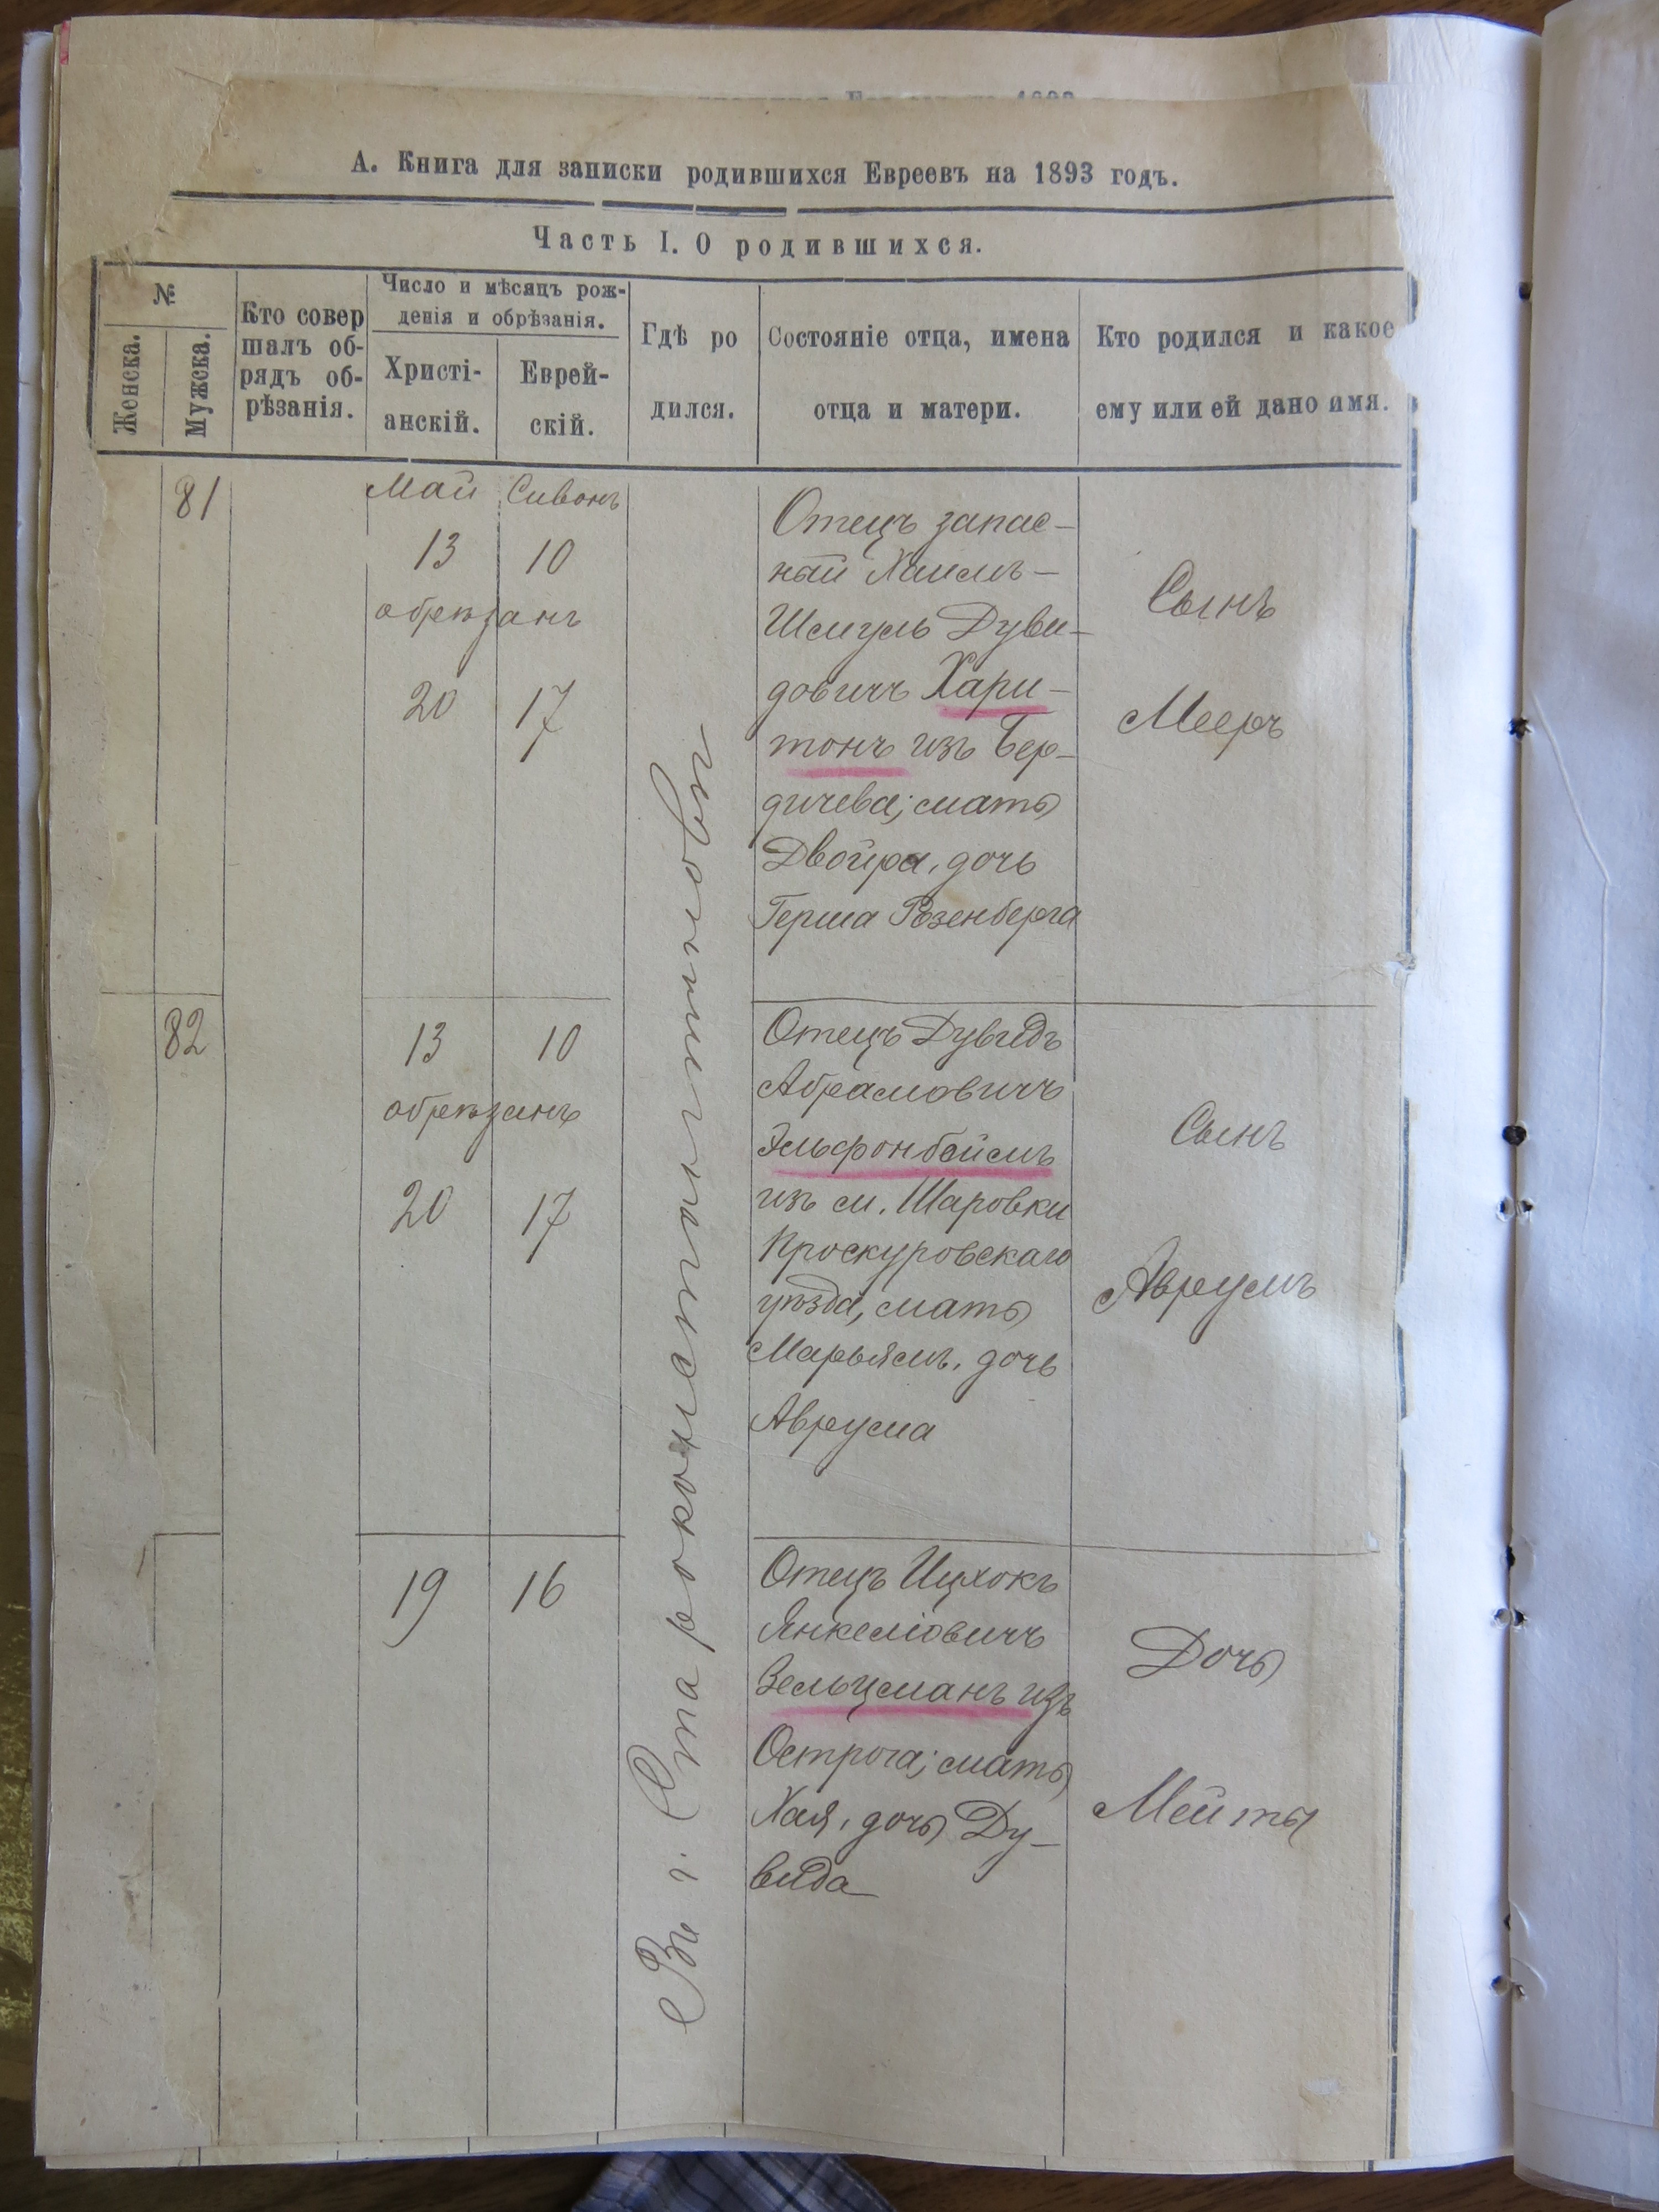 А. Книга для записки родившихся Евреевъ на 1893 годъ.
Часть I. О родившихся.
№
Женска.
Мужска.
Кто совер
шалъ об-
рядъ об-
рѣзанія.
Число и мѣсяцъ рож-
денія и обрѣзанія.
Христі-
анскій.
Еврей-
скій.
Гдѣ ро
дился.
Состояніе отца, имена
отца и матери.
Кто родился и какое
ему или ей дано имя.
81
Май Сивонъ
13 10
обрѣзанъ
20 17
Отецъ запас-
ный Хаимъ-
Шмуль Дуви-
довичъ Хари-
тонъ изъ Бер-
дичева; мать
Двойра, дочь
Герша Розенберга
Сынъ
Мееръ
82
13 10
обрѣзанъ
20 17
Отецъ Дувидъ
Абрамовичъ
Эльфонбеймъ
изъ м. Шаровки
Проскуровскаго
уѣзда, мать
Марьямъ, дочь
Аврума
Сынъ
Аврумъ
19 16
Отецъ Ицхокъ
Янкеліовичъ
Зельцманъ изъ
Острога; мать
Хая, дочь Ду-
вида
Дочь
Мейты
Въ г. Староконстантиновѣ